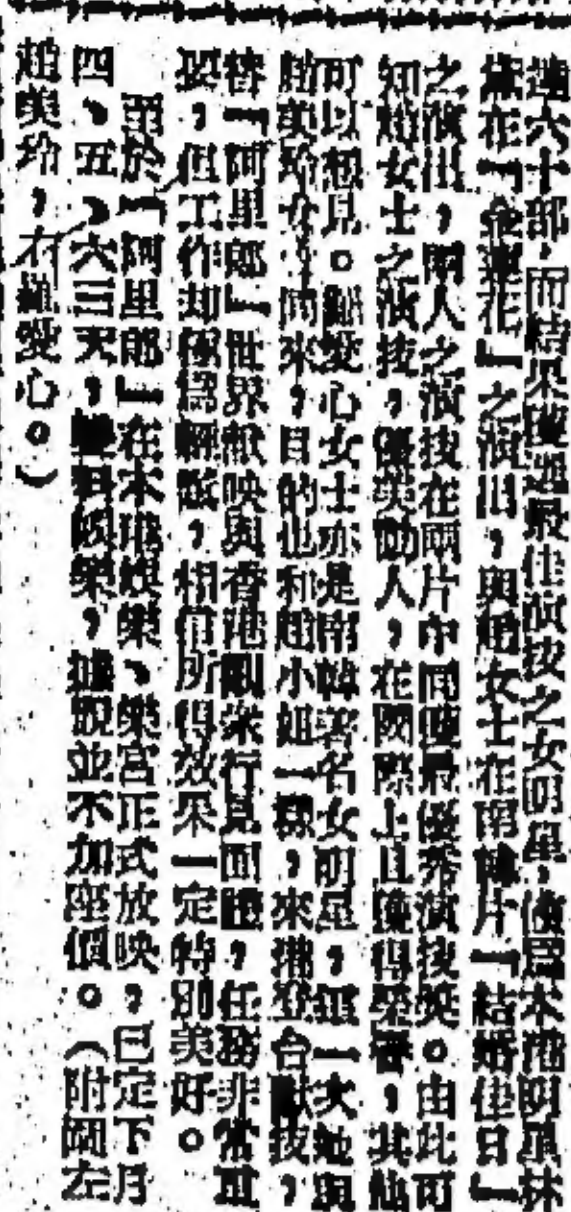 達六十部,而結果獲選最佳演技之女明星,僅爲本港明星林
黛在「金蓮花」之演出,與趙女士在南韓片「結婚佳日」
之演出,兩人之演技在兩片中同獲最優秀演技奬。由此可
知趙女士之演技,優美動人,在國際上且獲得榮譽,其他可
可以想見。羅愛心女士亦是南韓著名女明星,這一次她與
趙美玲女士同來,目的也和趙小姐一樣,來港登台獻技,
替「阿里郎」世界獻映與香港觀衆行見面禮,任務非常重
要,但工作却極爲輕鬆,相信所得效果一定特別美好。
至於「阿里郎」在本港娛樂、樂宮正式放映,已定下月
四、五、六三天,雖獻娛樂,據說並不加座價。(附圖左
趙美玲,右羅愛心。)